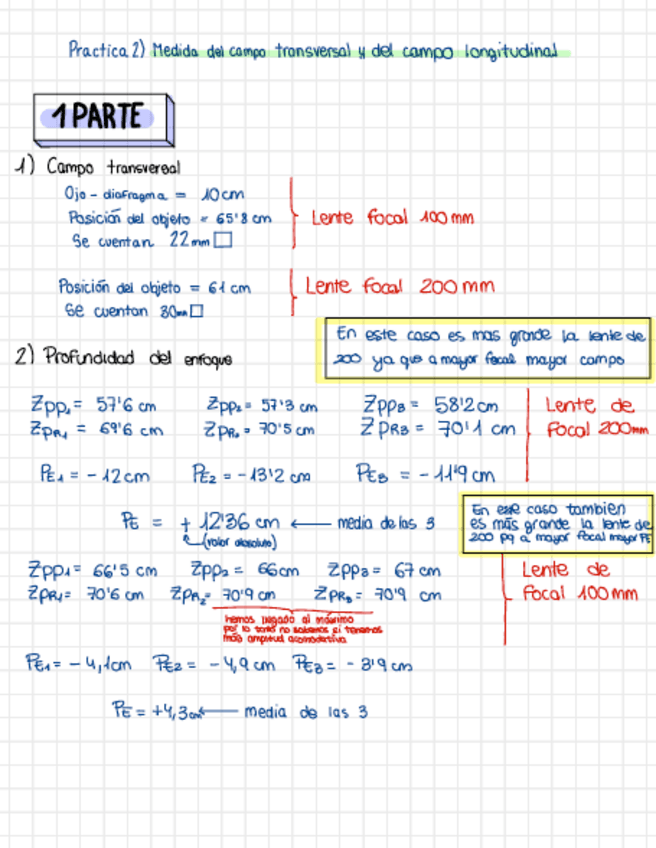 Practica 2) Medida del campo transversal y del campo longitudinal
1 PARTE
1) Campo transversal
Ojo - diafragma = 10 cm
Posición del objeto = 65'8 cm
Se cuentan 22mm □
Lente focal 100 mm
Posición del objeto = 61 cm
Se cuentan 30mm □
Lente focal 200 mm
En este caso es mas grande la lente de
200 ya que a mayor focal mayor campo
2) Profundidad del enfoque
Zpp₁ = 57'6 cm Zpp₂ = 57'3 cm Zpp₃ = 58'2 cm
Zpr₁ = 69'6 cm Zpr₂ = 70'5 cm Zpr₃ = 70'1 cm
Lente de
focal 200mm
PE₁ = -12 cm PE₂ = -13'2 cm PE₃ = -11'9 cm
PE = + 12'36 cm ← media de las 3
(valor absoluto)
En este caso tambien
es más grande la lente de
200 pq a mayor focal mayor PE
Zpp₁ = 66'5 cm Zpp₂ = 66cm Zpp₃ = 67 cm
Zpr₁ = 70'6 cm Zpr₂ = 70'9 cm Zpr₃ = 70'9 cm
Lente de
focal 100mm
hemos llegado al máximo
por lo tanto no sabemos si tenemos
más amplitud acomodativa
PE₁ = -4,1cm PE₂ = -4,9 cm PE₃ = -3'9 cm
PE = +4,3cm ← media de las 3